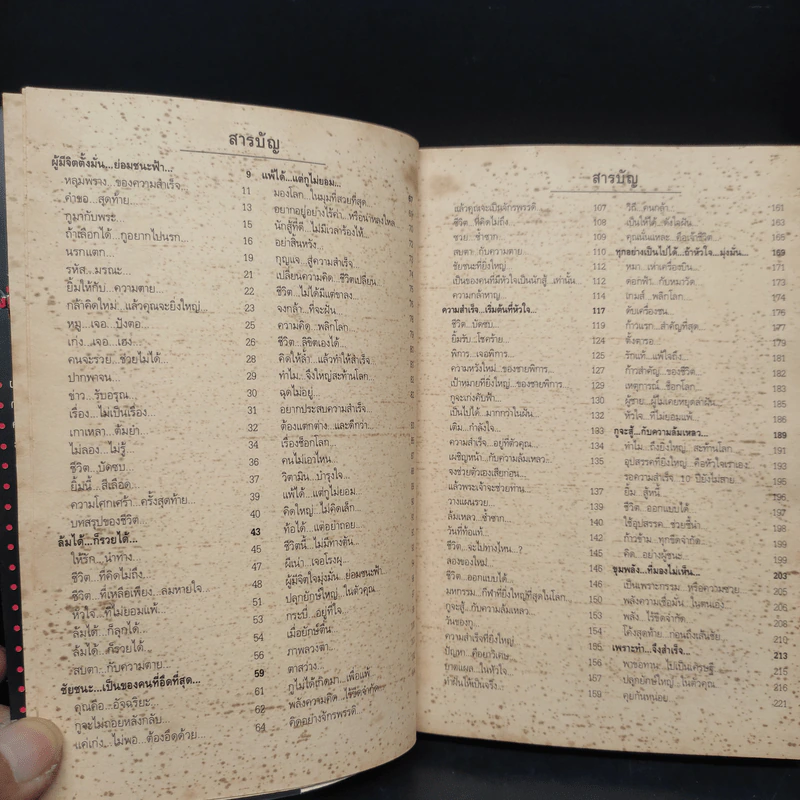 สารบัญ
ผู้มีจิตตั้งมั่น...ย่อมชนะฟ้า... 9
หลุมพราง...ของความสำเร็จ... 11
คำขอ...สุดท้าย... 13
กูมากับพระ... 15
ถ้าเลือกได้...กูอยากไปนรก... 16
นรกแตก... 19
รหัส...มรณะ... 21
ยิ้มให้กับ...ความตาย... 22
กล้าคิดใหม่...แล้วคุณจะยิ่งใหญ่... 23
หมู...เจอ...ปังตอ... 25
เก่ง...เจอ...เฮง... 26
คนจะรวย...ช่วยไม่ได้... 28
ปากพาจน... 29
ข่าว...รับอรุณ... 30
เรื่อง...ไม่เป็นเรื่อง... 31
เกาเหลา...ต้มยำ... 32
ไม่ลอง...ไม่รู้... 34
ชีวิต...บัดซบ... 36
ยิ้มนี้...สีเลือด... 37
ความโศกเศร้า...ครั้งสุดท้าย... 39
บทสรุปของชีวิต... 40
ล้มได้...ก็รวยได้... 43
ให้รัก...นำทาง... 45
ชีวิต...ที่คิดไม่ถึง... 47
ชีวิต...ที่เหลือเพียง...ลมหายใจ... 48
หัวใจ...ที่ไม่ยอมแพ้... 51
ล้มได้...ก็ลุกได้... 53
ล้มได้...ก็รวยได้... 54
สบตา...กับความตาย... 56
ชัยชนะ...เป็นของคนที่อึดที่สุด... 59
คุณคือ...อัจฉริยะ... 61
กูจะไม่ถอยหลังกลับ... 62
แค่เก่ง...ไม่พอ...ต้องอึดด้วย... 64
แพ้ได้...แต่กูไม่ยอม...
มองโลก...ในมุมที่สวยที่สุด...
อยากอยู่อย่างไร้ค่า...หรือน่าหลงใหล
นักสู้ที่ดี...ไม่มีเวลาร้องไห้...
อย่าสิ้นหวัง...
กุญแจ...สู่ความสำเร็จ...
เปลี่ยนความคิด...ชีวิตเปลี่ยน
ชีวิต...ไม่ได้มีแต่ขาลง...
จงกล้า...ที่จะฝัน...
ความคิด...พลิกโลก...
ชีวิต...ลิขิตเองได้...
คิดให้ล้ำ...แล้วทำให้สำเร็จ...
ทำไม...จึงใหญ่สะท้านโลก...
ฉุดไม่อยู่...
อยากประสบความสำเร็จ...
ต้องแตกต่าง...และดีกว่า...
เรื่องช็อกโลก...
คนไม่เอาไหน...
วิตามิน...บำรุงใจ...
แพ้ได้...แต่กูไม่ยอม...
คิดใหญ่...ไม่คิดเล็ก...
ท้อได้...แต่อย่าถอย...
ชีวิตนี้...ไม่มีทางตัน...
ผีเน่า...เจอโรงผุ...
ผู้มีจิตใจมุ่งมั่น...ย่อมชนะฟ้า...
ปลุกยักษ์ใหญ่...ในตัวคุณ...
กระบี่...อยู่ที่ใจ...
เมื่อยักษ์ตื่น...
ภาพลวงตา...
ตาสว่าง...
กูไม่ได้เกิดมา...เพื่อแพ้
พลังความคิด...ไร้ขีดจำกัด...
คิดอย่างจักรพรรดิ...
สารบัญ
แล้วคุณจะเป็นจักรพรรดิ 107
ชีวิต...ที่คิดไม่ถึง... 108
ซวย...ซ้ำซาก... 109
สบตา...กับความตาย... 110
ชัยชนะที่ยิ่งใหญ่... 112
เป็นของคนที่มีหัวใจเป็นนักสู้...เท่านั้น 112
ความกล้าหาญ... 114
ความสำเร็จ...เริ่มต้นที่หัวใจ... 117
ชีวิต...บัดซบ... 119
ยิ้มรับ...โชคร้าย... 124
พิการ...เจอพิการ... 125
ความหวังใหม่...ของชายพิการ... 127
เป้าหมายที่ยิ่งใหญ่...ของชายพิการ... 129
กูจะเก่งคับฟ้า... 130
เป็นไปได้...มากกว่าในฝัน... 132
เติม...กำลังใจ... 133
ความสำเร็จ...อยู่ที่ตัวคุณ... 134
เผชิญหน้า...กับความล้มเหลว... 135
จงช่วยตัวเองเสียก่อน...
แล้วพระเจ้าจะช่วยท่าน... 137
วางแผนรวย... 139
ล้มเหลว...ซ้ำซาก... 140
วันที่ท้อแท้... 143
ชีวิต...จะไปทางไหน...? 145
สองของใหม่...
ชีวิต...ออกแบบได้... 146
มหกรรม...กีฬาที่ยิ่งใหญ่ที่สุดในโลก...
กูจะสู้...กับความล้มเหลว...
วันของกู...
ความสำเร็จที่ยิ่งใหญ่ 154
ปัญหา...คือยาวิเศษ...
ยาดแผล...ในหัวใจ 156
ทำฝันให้เป็นจริง... 157
159
วิถี...คนกล้า... 161
เป็นให้ได้...ดั่งใจฝัน 163
คุณนั่นแหละ...คือเจ้าชีวิต... 165
ทุกอย่างเป็นไปได้...ถ้าหัวใจ...มุ่งมั่น... 169
หมา...เห่าเครื่องบิน... 171
ดอกฟ้า...กับหมาวัด... 173
เกมส์...พลิกโลก... 174
ดับเครื่องชน... 176
ก้าวแรก...สำคัญที่สุด... 177
ตั้งตารอ... 179
รักแท้...แพ้ใจถึง... 181
ก้าวสำคัญ...ของชีวิต... 182
เหตุการณ์...ช็อกโลก... 183
ผู้ชาย...ผู้ไม่เคยหยุดล่าฝัน... 185
หัวใจ...ที่ไม่ยอมแพ้... 186
กูจะสู้...กับความล้มเหลว... 189
ทำไม...ถึงยิ่งใหญ่...สะท้านโลก... 191
อุปสรรคที่ยิ่งใหญ่...คือหัวใจเราเอง 193
รอความสำเร็จ...10 ปียังไม่สาย 195
ยิ้ม...สู้หนี้ 196
ชีวิต...ออกแบบได้ 197
ใช้อุปสรรค...ช่วยชี้นำ 199
ก้าวข้าม...ทุกขีดจำกัด... 200
คิด...อย่างผู้ชนะ... 201
ขุมพลัง...ที่มองไม่เห็น... 203
เป็นเพราะกรรม...หรือความซวย... 205
พลังความเชื่อมั่น...ในตนเอง 206
พลัง...ไร้ขีดจำกัด... 208
โค้งสุดท้าย...ก่อนถึงเส้นชัย 210
เพราะทำ...จึงสำเร็จ... 213
พาขอทาน...ไปเป็นเศรษฐี... 215
ปลุกยักษ์ใหญ่...ในตัวคุณ... 216
คุยกันหน่อย... 221